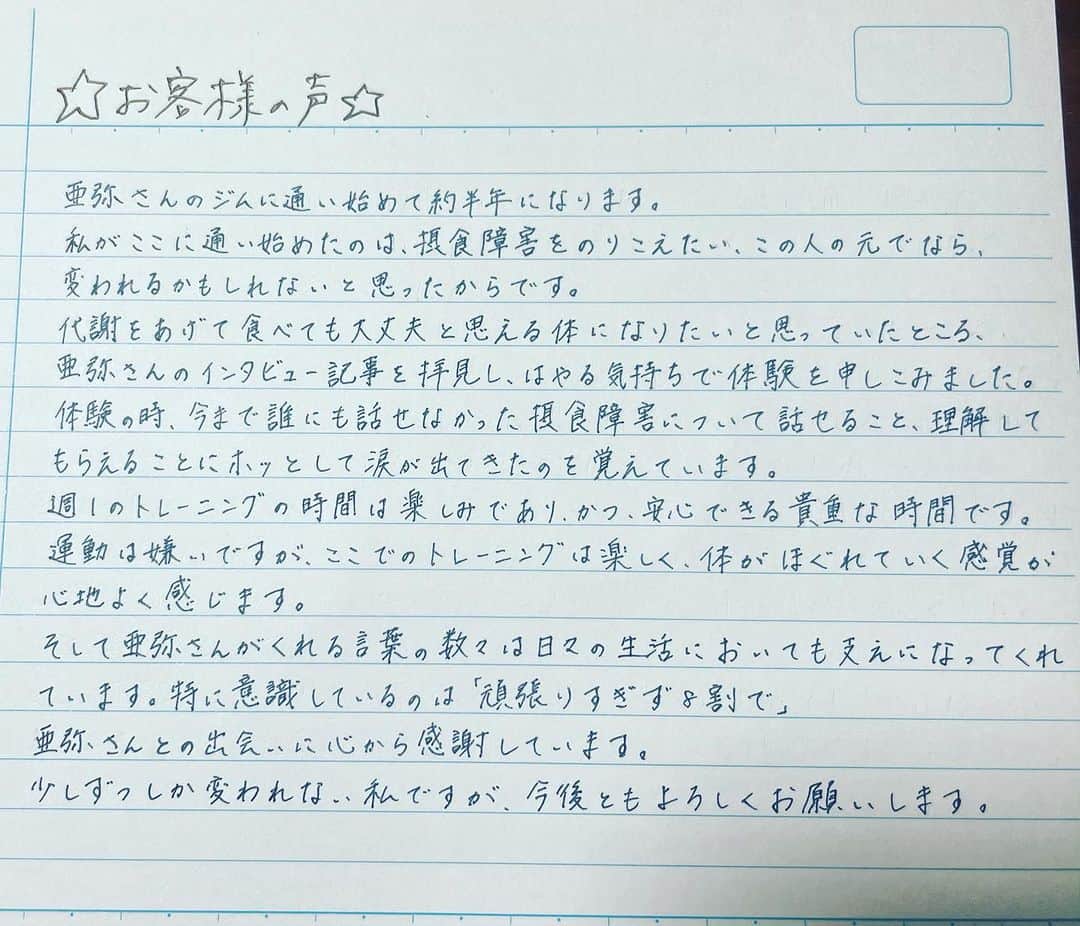 ☆お客様の声☆
亜弥さんのジムに通い始めて約半年になります。
私がここに通い始めたのは、摂食障害をのりこえたい、この人の元でなら、
変われるかもしれないと思ったからです。
代謝をあげて食べても大丈夫と思える体になりたいと思っていたところ、
亜弥さんのインタビュー記事を拝見し、はやる気持ちで体験を申しこみました。
体験の時、今まで誰にも話せなかった摂食障害について話せること、理解して
もらえることにホッとして涙が出てきたのを覚えています。
週1のトレーニングの時間は楽しみであり、かつ、安心できる貴重な時間です。
運動は嫌いですが、ここでのトレーニングは楽しく、体がほぐれていく感覚が
心地よく感じます。
そして亜弥さんがくれる言葉の数々は日々の生活においても支えになってくれ
ています。特に意識しているのは「頑張りすぎず8割で」
亜弥さんとの出会いに心から感謝しています。
少しずつしか変われない私ですが、今後ともよろしくお願いします。